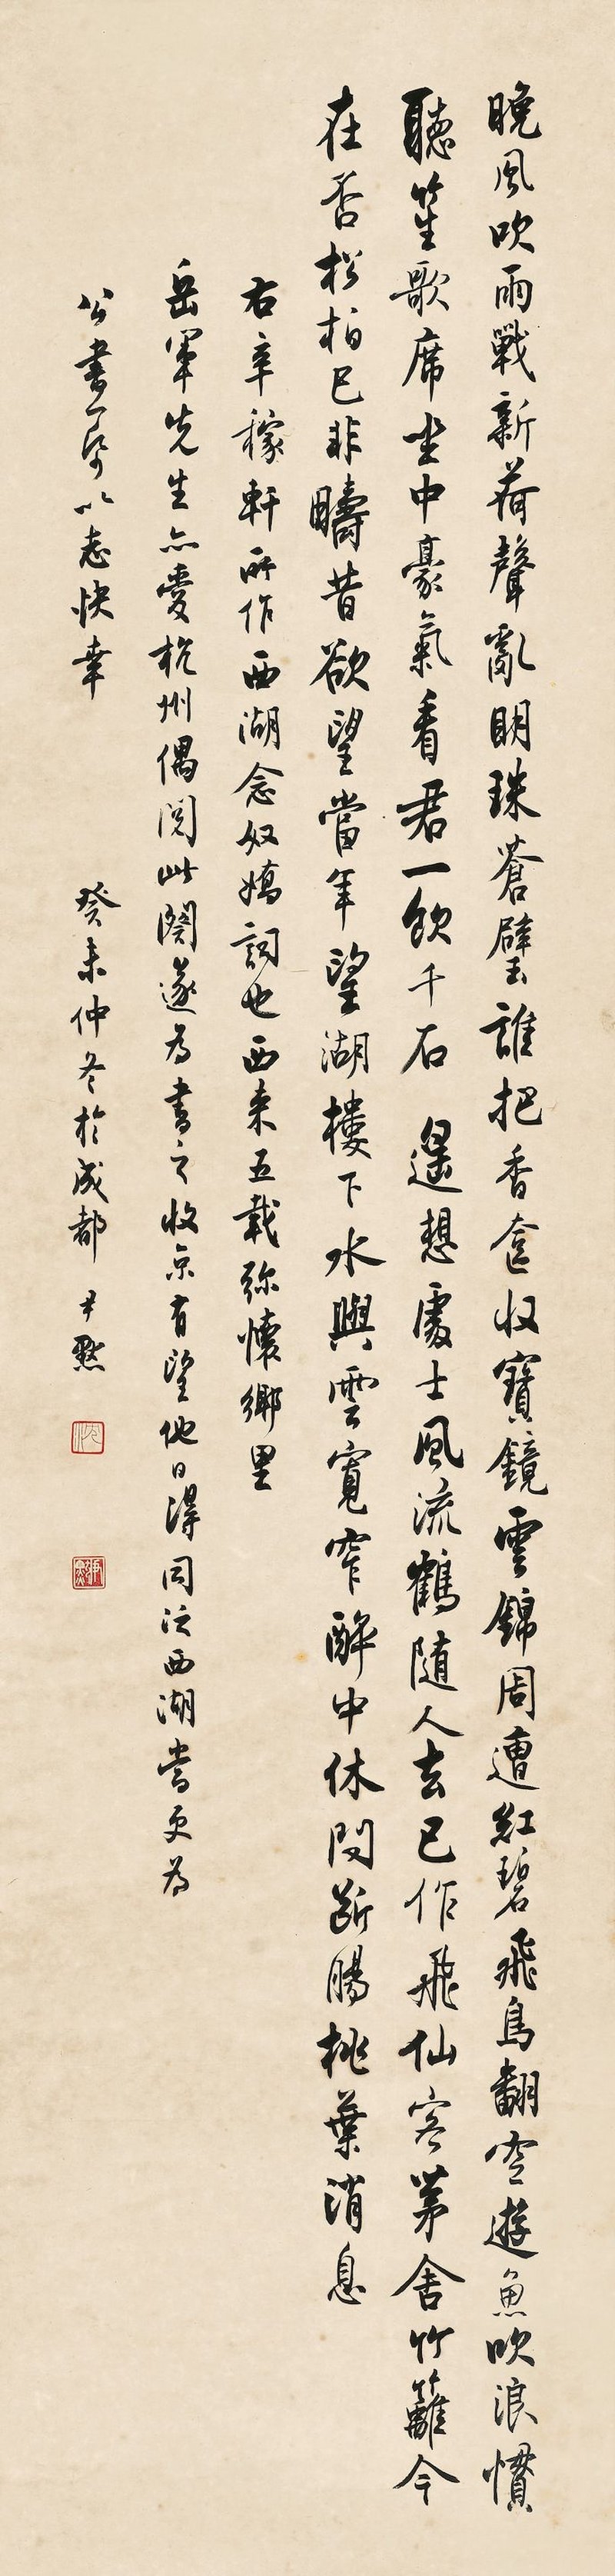 晚風吹雨戰新荷聲亂明珠蒼璧誰把香奩收寶鏡雲錦周遭紅碧飛鳥翻空遊魚吹浪慣
聽笙歌席坐中豪氣看君一飲千石 遙想處士風流鶴随人去已作飛仙客茅舍竹籬今
在否松柏已非疇昔欲望當年望湖樓下水與雲寬窄醉中休問斷腸桃葉消息
右辛稼軒所作西湖念奴嬌詞也西来五載弥懷鄉里
岳軍先生亦愛杭州偶閱此闋遂為書之收京有望他日得同泛西湖當更為
公書一學以志快幸 癸未仲冬於成都 尹默
沈
尹默